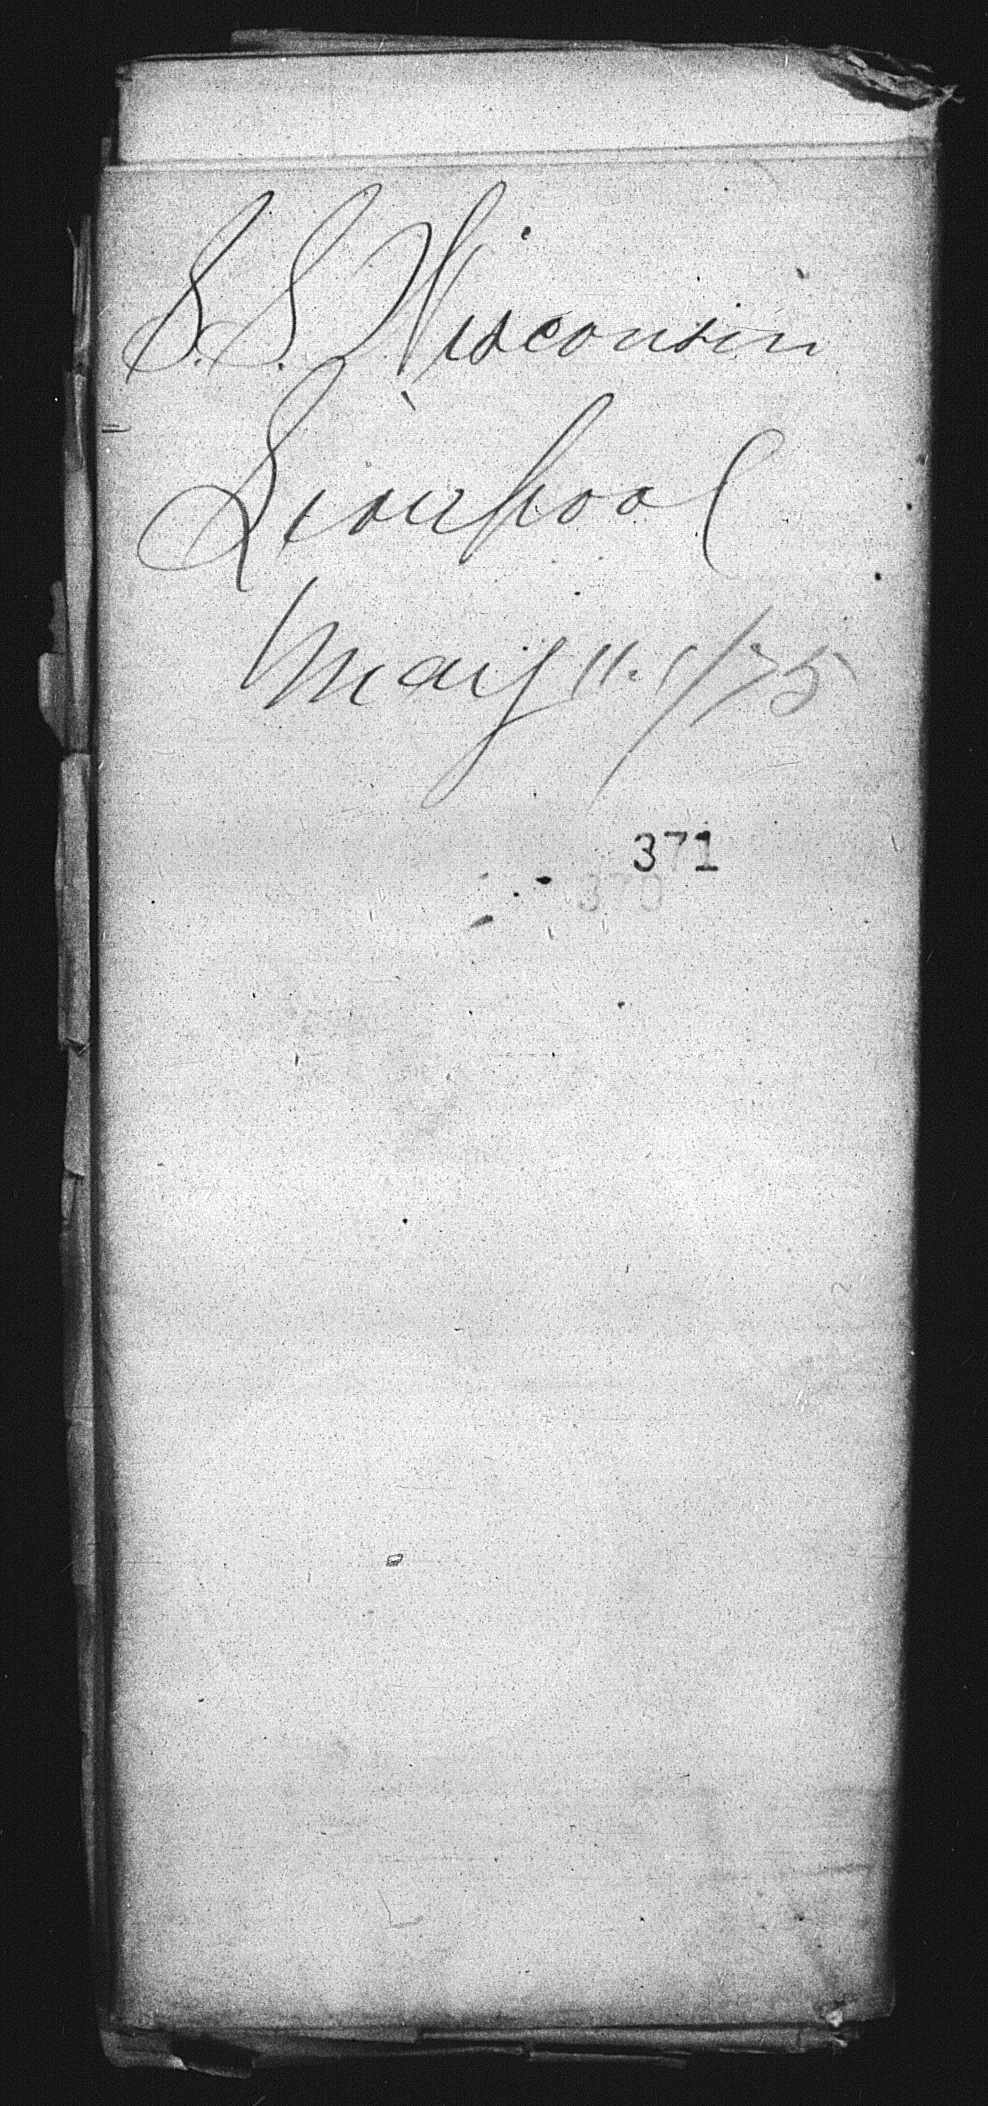 S.S. Wisconsin
Liverpool
May 11. 1/75
371
370